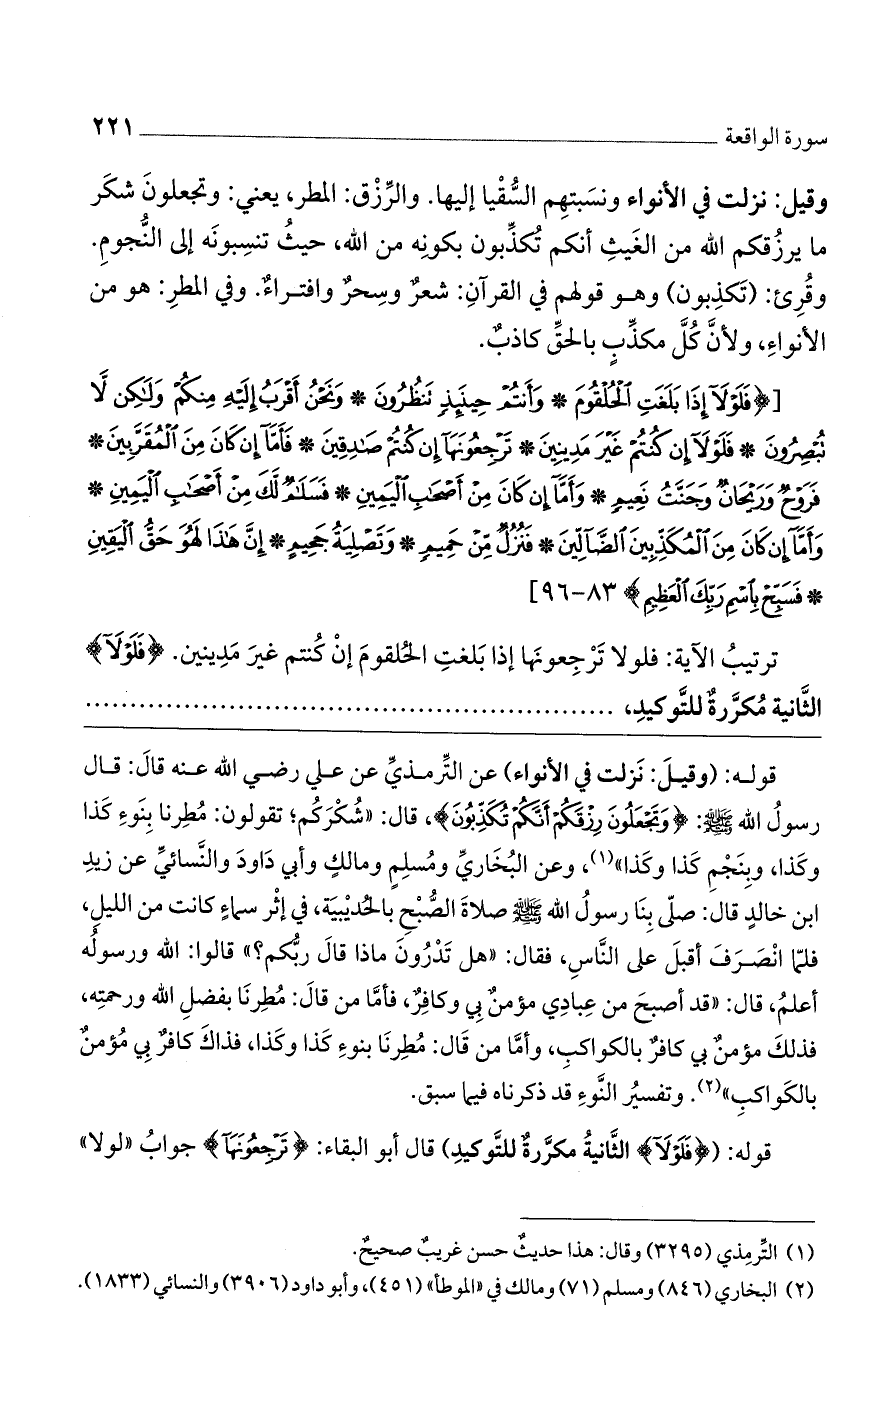 سورة الواقعة ٢٢١
وقيل: نزلت في الأنواء ونسَبتهِم السُّقْيا إليها. والرِّزْق: المطر، يعني: وتجعلونَ شكَر
ما يرزُقكم الله من الغَيثِ أنكم تُكذِّبون بكونِه من الله، حيثُ تنسِبونَه إلى النُّجومِ.
وقُرِئ: (تَكذِبون) وهو قولهم في القرآنِ: شعرٌ وسِحرٌ وافتراءٌ. وفي المطرِ: هو من
الأنواءِ، ولأنَّ كُلَّ مكذِّبٍ بالحقِّ كاذبٌ.
[﴿فَلَوْلَآ إِذَا بَلَغَتِ الْحُلْقُومَ * وَأَنتُمْ حِينَئِذٍ تَنظُرُونَ * وَنَحْنُ أَقْرَبُ إِلَيْهِ مِنكُمْ وَلَٰكِن لَّا
تُبْصِرُونَ * فَلَوْلَآ إِن كُنتُمْ غَيْرَ مَدِينِينَ * تَرْجِعُونَهَآ إِن كُنتُمْ صَٰدِقِينَ * فَأَمَّآ إِن كَانَ مِنَ الْمُقَرَّبِينَ *
فَرَوْحٌ وَرَيْحَانٌ وَجَنَّتُ نَعِيمٍ * وَأَمَّآ إِن كَانَ مِنْ أَصْحَٰبِ الْيَمِينِ * فَسَلَٰمٌ لَّكَ مِنْ أَصْحَٰبِ الْيَمِينِ *
وَأَمَّآ إِن كَانَ مِنَ الْمُكَذِّبِينَ الضَّآلِّينَ * فَنُزُلٌ مِّنْ حَمِيمٍ * وَتَصْلِيَةُ جَحِيمٍ * إِنَّ هَٰذَا لَهُوَ حَقُّ الْيَقِينِ
* فَسَبِّحْ بِاسْمِ رَبِّكَ الْعَظِيمِ﴾ ٨٣-٩٦]
ترتيبُ الآية: فلولا تَرْجِعونَها إذا بَلغتِ الحُلقومَ إنْ كُنتم غيرَ مَدِينين. ﴿فَلَوْلَآ﴾
الثَّانية مُكرَّرةٌ للتَّوكيدِ، ......................................................
قوله: (وقيلَ: نَزلت في الأنواء) عن التِّرمذيِّ عن علي رضي الله عنه قالَ: قال
رسولُ الله ﷺ: ﴿وَتَجْعَلُونَ رِزْقَكُمْ أَنَّكُمْ تُكَذِّبُونَ﴾، قال: «شُكْرَكُم؛ تقولون: مُطِرنا بِنَوءِ كَذا
وكَذا، وبِنَجْمِ كَذا وكَذا»(١)، وعن البُخَاريِّ ومُسلِمٍ ومالكٍ وأبي دَاودَ والنَّسائيِّ عن زيدِ
ابن خالدٍ قال: صلَّى بِنَا رسولُ الله ﷺ صلاةَ الصُّبْحِ بالحُديْبِيَة، في إثْر سماءٍ كانت من الليلِ،
فلمَّا انْصَرَفَ أقبلَ على النَّاسِ، فقال: «هل تَدْرُونَ ماذا قالَ ربُّكم؟» قالوا: الله ورسولُه
أعلمُ، قال: «قد أصبحَ من عِبادِي مؤمنٌ بي وكافِرٌ، فأمَّا من قالَ: مُطِرنَا بفضلِ الله ورحمتِه،
فذلكَ مؤمنٌ بي كافرٌ بالكواكبِ، وأمَّا من قَال: مُطِرنَا بنوءِ كَذا وكَذا، فذاكَ كافرٌ بي مُؤمنٌ
بالكَواكبِ»(٢). وتفسيُر النَّوءِ قد ذكرناه فيما سبق.
قوله: (﴿فَلَوْلَآ﴾ الثَّانيةُ مكرَّرةٌ للتَّوكيدِ) قال أبو البقاء: ﴿تَرْجِعُونَهَآ﴾ جوابُ «لولا»
(١) التِّرمِذي (٣٢٩٥) وقال: هذا حديثٌ حسن غريبٌ صحيحٌ.
(٢) البخاري (٨٤٦) ومسلم (٧١) ومالك في «الموطأ» (٤٥١)، وأبو داود (٣٩٠٦) والنسائي (١٨٣٣).